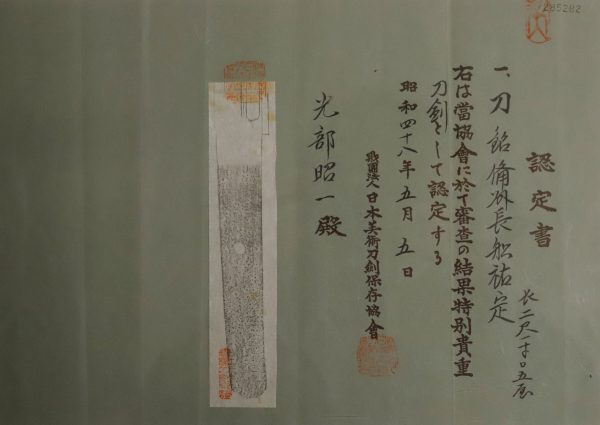 285282
認定書
一、刀 銘 備州長船祐定
長二尺一寸五厘
右は當協會に於て審査の結果特別貴重
刀剣として認定する
昭和四十八年五月五日
財團法人日本美術刀剣保存協會
光部昭一殿